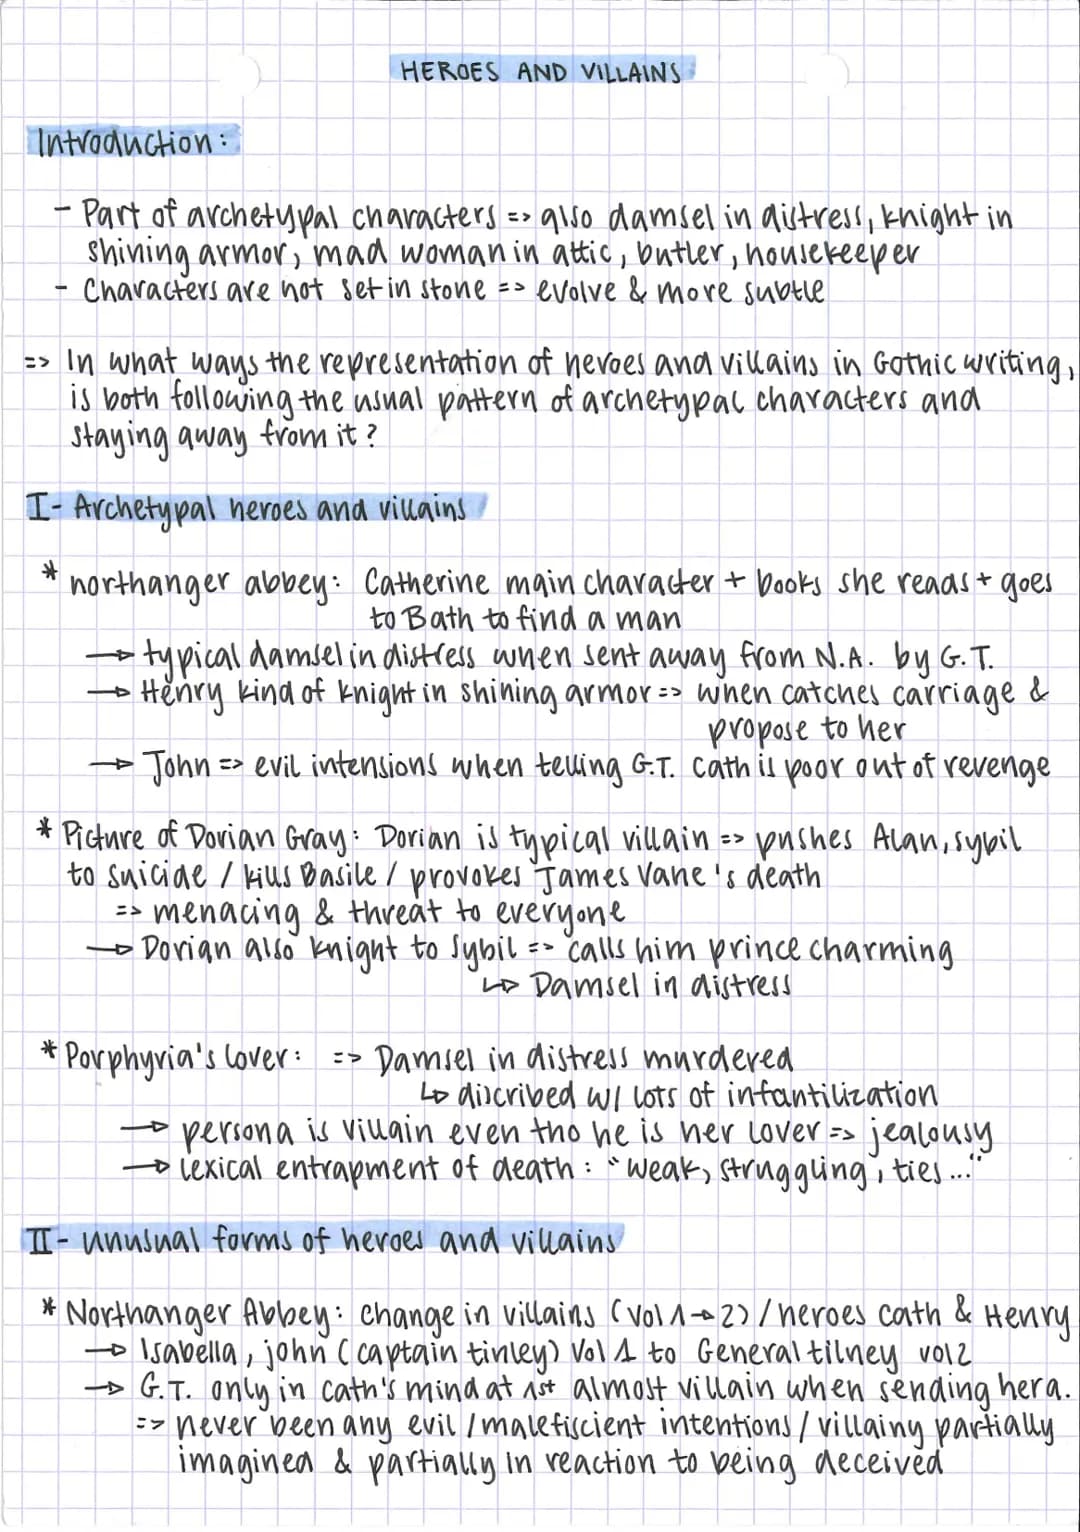 HEROES AND VILLAINS
Introduction:
- Part of archetypal characters => also damsel in distress, knight in
shining armor, mad woman in attic, butler, housekeeper
- Characters are not set in stone => evolve & more subtle
=> In what ways the representation of heroes and villains in Gothic writing,
is both following the usual pattern of archetypal characters and
staying away from it?
I- Archetypal heroes and villains
* northanger abbey: Catherine main character + books she reads + goes
to Bath to find a man
→ typical damsel in distress when sent away from N.A. by G.T.
→ Henry kind of knight in shining armor => when catches carriage &
propose to her
→ John => evil intensions when telling G.T. Cath is poor out of revenge
* Picture of Dorian Gray: Dorian is typical villain => pushes Alan, sybil
to suicide / kills Basile / provokes James Vane's death
=> menacing & threat to everyone
→ Dorian also knight to Sybil => calls him prince charming
↳ Damsel in distress
* Porphyria's lover: => Damsel in distress murdered
↳ discribed w/ lots of infantilization
→ persona is villain even tho he is her lover => jealousy
→ Lexical entrapment of death: "weak, struggling, ties..."
II- unusual forms of heroes and villains
* Northanger Abbey: change in villains (vol 1→2) / heroes cath & Henry
→ Isabella, john (captain tinley) Vol 1 to General tilney vol 2
→ G.T. only in cath's mind at 1st almost villain when sending her a.
=> never been any evil / malefiscient intentions / villainy partially
imagined & partially in reaction to being deceived